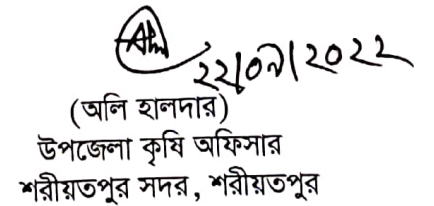 ২২/০৯/২০২২
(অলি হালদার)
উপজেলা কৃষি অফিসার
শরীয়তপুর সদর, শরীয়তপুর